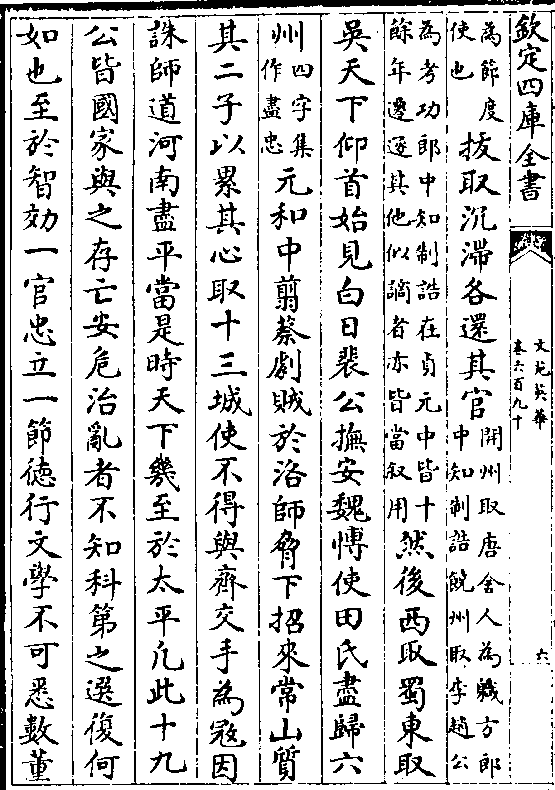 欽定四庫全書
文苑英華
卷六百九十
六
為節度
使也
拔取沉滯各還其官
開州取唐舍人為職方郎
中知制誥饒州取李趙公
為考功郎中知制誥在貞元中皆十
餘年遷逐其他似謫者亦皆當叙用
然後西取蜀東取
吳天下仰首始見白日裴公撫安魏愽使田氏盡歸六
州
四字集
作盡忠
元和中翦蔡劇賊於洛師脅下招來常山質
其二子以累其心取十三城使不得與齊交手為㓂因
誅師道河南盡平當是時天下幾至於太平凡此十九
公皆國家與之存亡安危治亂者不知科第之選復何
如也至於智效一官忠立一節徳行文學不可悉數董